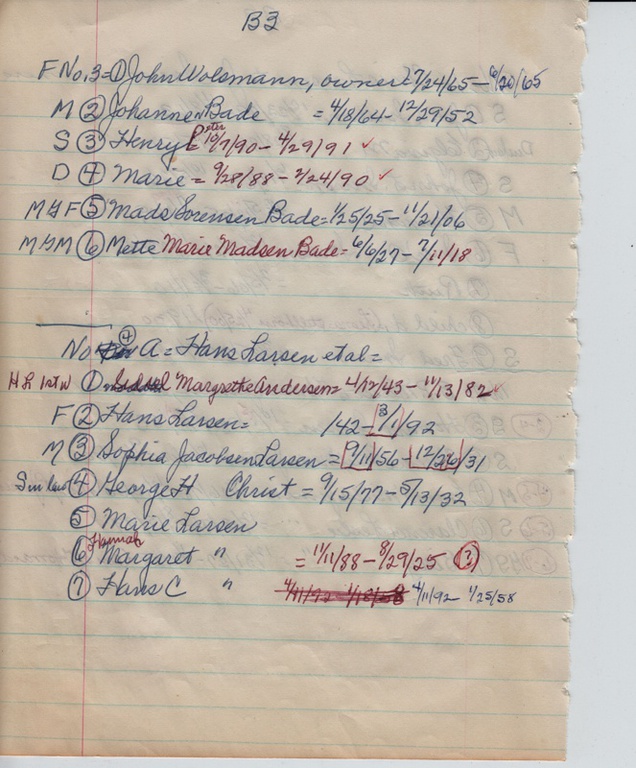 B3
F No. 3 = ① John Wolsmann, owner = 7/24/65 - 6/20/65
M ② Johannen Bade = 4/18/64 - 12/29/52
S ③ Henry Peter 10/7/90 - 4/29/91 ✓
D ④ Marie = 9/28/88 - 2/24/90 ✓
M G F ⑤ Mads Sorensen Bade = 1/25/25 - 11/21/06
M G M ⑥ Mette Marie Madsen Bade = 6/6/27 - 7/11/18
No ④ A = Hans Larsen et al =
H L 1st W ① Margrethe Andersen = 4/12/43 - 11/13/82 ✓
F ② Hans Larsen = /42 - 3/1/92
M ③ Sophia Jacobsen Larsen = 9/11/56 - 12/26/31
Son law ④ George H Christ = 9/15/77 - 5/13/32
⑤ Marie Larsen
⑥ Hannah Margaret " = 11/11/88 - 8/29/25 ?
⑦ Hans C " 4/11/92 - 1/25/58